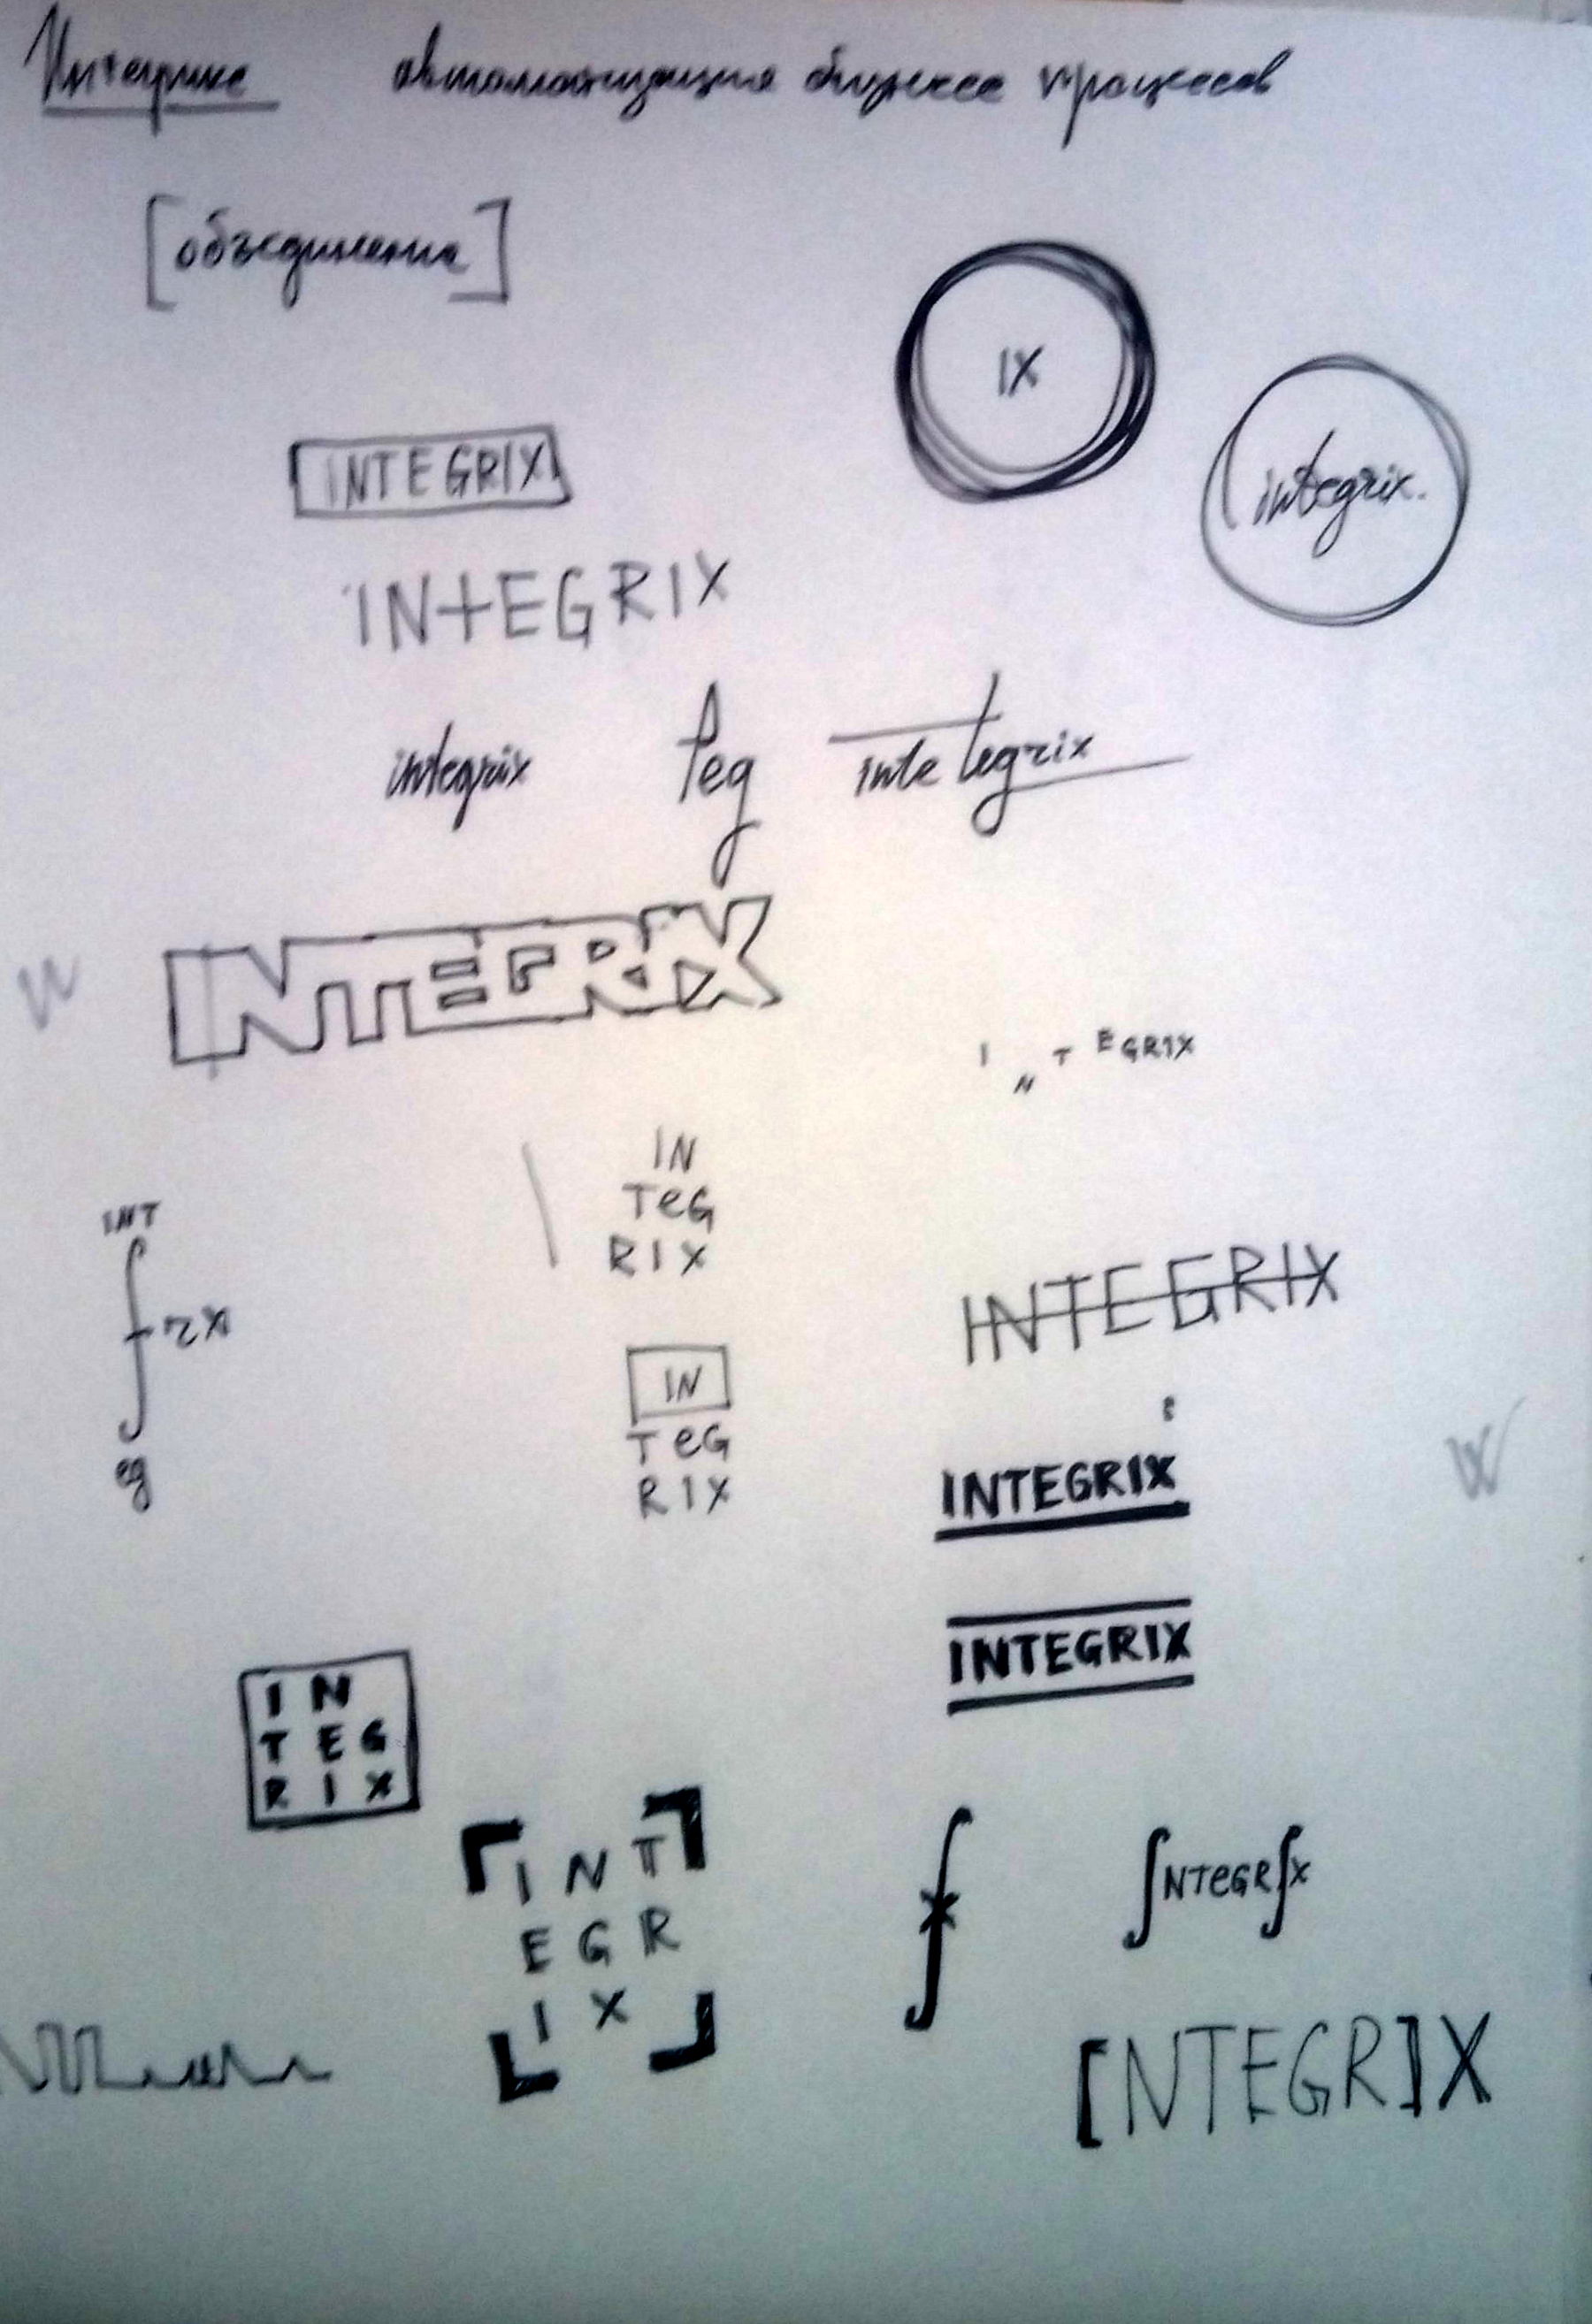 Интегрикс автоматизация бизнес процессов
[объединение]
IX
integrix.
INTEGRIX
INTEGRIX
integrix teg inte tegrix
INTEGRIX
INTEGRIX
IN
TeG
RIX
INT
∫ rx
eg
INTEGRIX
IN
TeG
RIX
INTEGRIX
W
INTEGRIX
IN
TEG
RIX
INT
EGR
IX
∫NTeGR∫X
[NTEGR]X